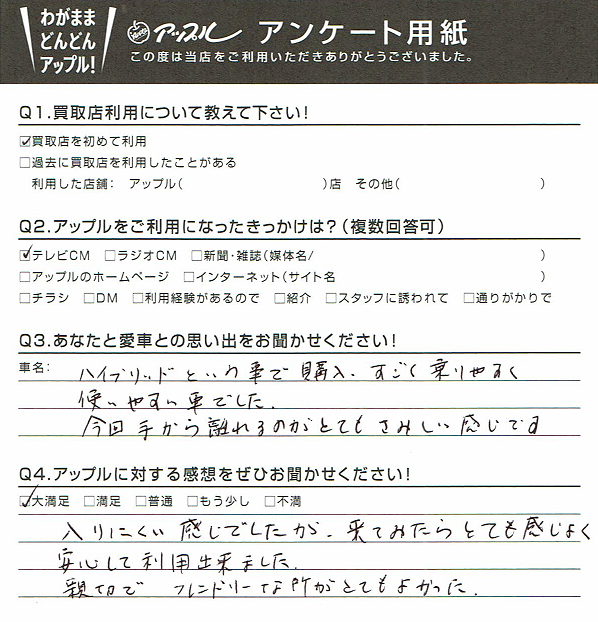 わがまま
どんどん
アップル!
アップル アンケート用紙
この度は当店をご利用いただきありがとうございました。
Q1.買取店利用について教えて下さい!
☑買取店を初めて利用
□過去に買取店を利用したことがある
利用した店舗: アップル( )店 その他( )
Q2.アップルをご利用になったきっかけは?(複数回答可)
☑テレビCM □ラジオCM □新聞・雑誌(媒体名/ )
□アップルのホームページ □インターネット(サイト名 )
□チラシ □DM □利用経験があるので □紹介 □スタッフに誘われて □通りがかりで
Q3.あなたと愛車との思い出をお聞かせください!
車名: ハイブリッドといの車で購入、すごく乗りやすく
使いやすい車でした。
今回手から離れるのがとてもさみしい感じです
Q4.アップルに対する感想をぜひお聞かせください!
☑大満足 □満足 □普通 □もう少し □不満
入りにくい感じでしたが、来てみたらとても感じよく
安心して利用出来ました。
親切で フレンドリーな所がとてもよかった。